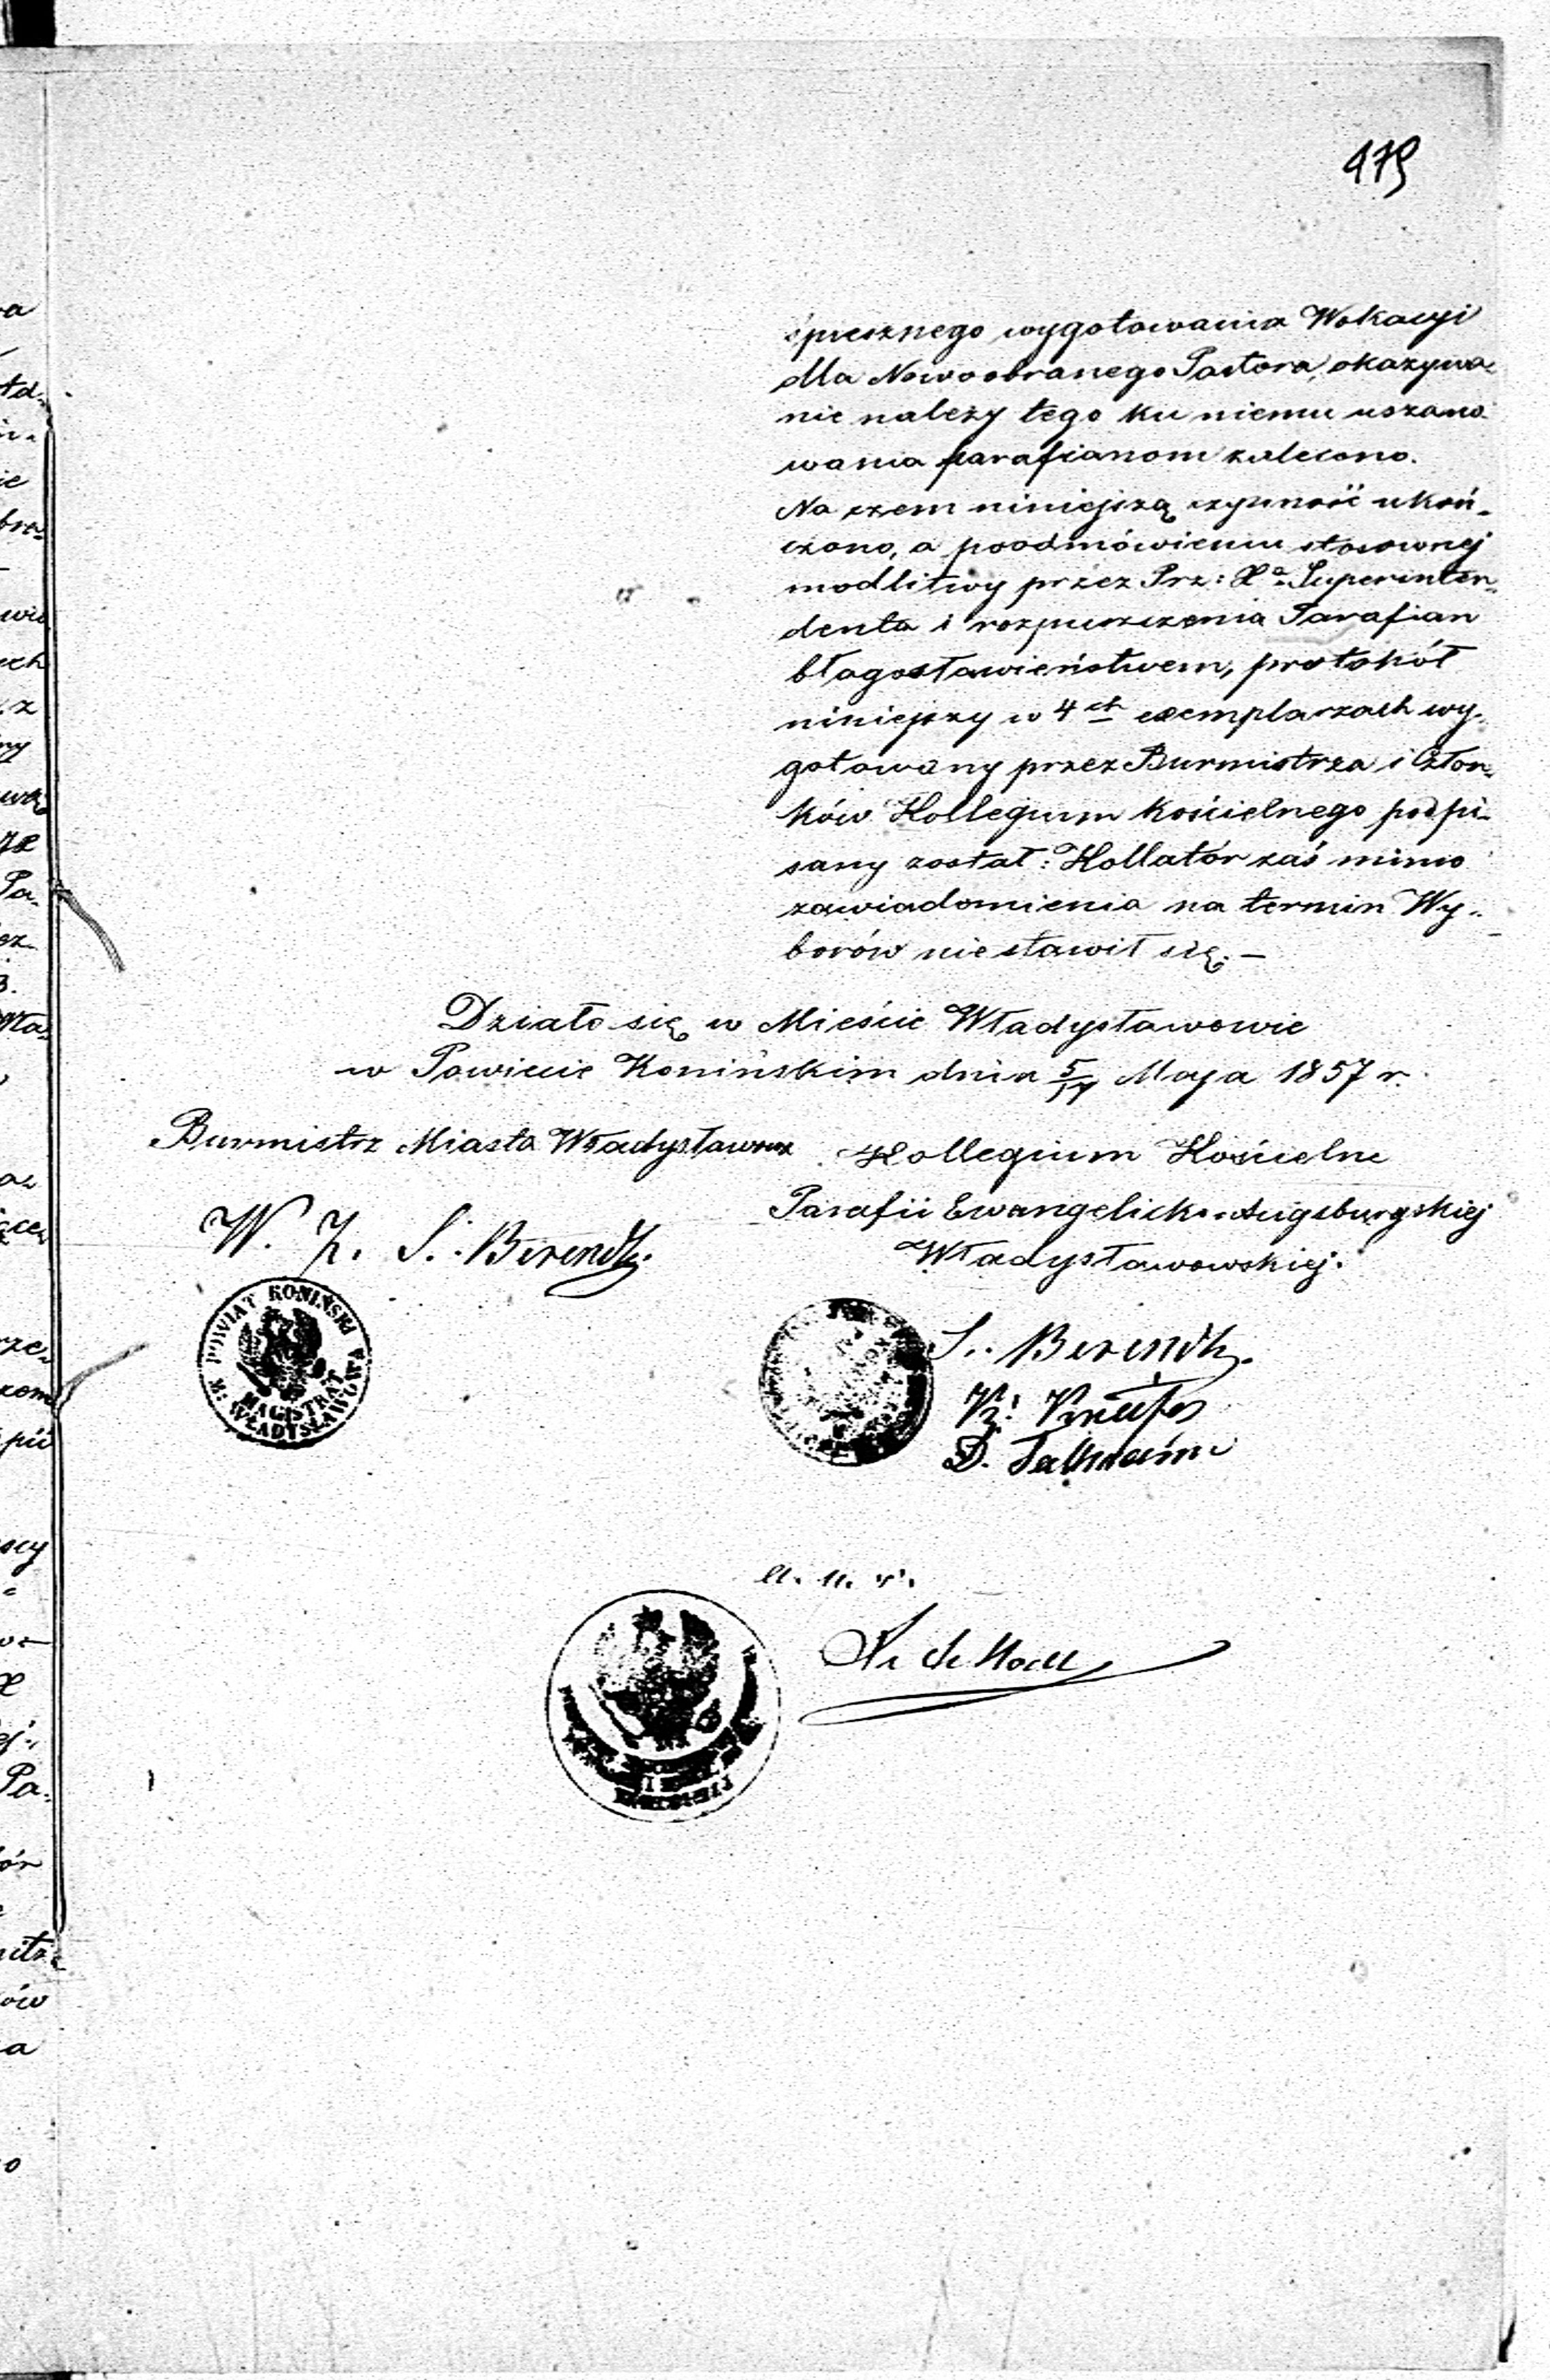 479
śpiesznego wygotowania Wokacyi
dla Nowoobranego Pastora, okazywa
nie należy tego ku niemu uszano
wania parafianom zalecono.
Na czem niniejszą czynność ukoń-
czono, a po odmówieniu stosownej
modlitwy przez Prz: Xa Superinten-
denta i rozpuszczenia Parafian
błogosławieństwem, protokół
niniejszy w 4ch exemplarzach wy-
gotowany przez Burmistrza i Człon-
ków Kollegium Kościelnego podpi-
sany został: Kollator zaś mimo
zawiadomienia na termin Wy-
borów nie stawił się. —
Działo się w Mieście Władysławowie
w Powiecie Konińskim dnia 5/17 Maja 1857 r.
Burmistrz Miasta Władysławowa
W. Z. S. Berendt
POWIAT KONIŃSKI
MAGISTRAT
M: WŁADYSŁAWOWA
Kollegium Kościelne
Parafii Ewangelicko-Augsburgskiej
Władysławowskiej.
S. Berendt
D.